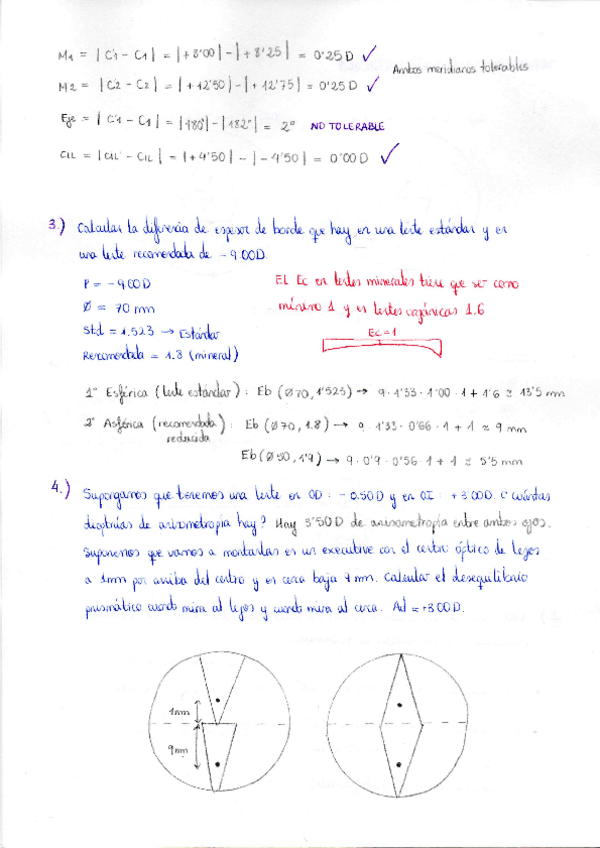 M1 = | C'1 - C1 | = | +8'00 | - | +8'25 | = 0'25 D ✓
Ambos meridianos tolerables
M2 = | C'2 - C2 | = | +12'50 | - | +12'75 | = 0'25 D ✓
Eje = | C'1 - C1 | = | 180° | - | 182° | = 2° NO TOLERABLE
CIL = | CIL' - CIL | = | +4'50 | - | -4'50 | = 0'00 D ✓
3.) Calcular la diferencia de espesor de borde que hay en una lente estándar y en
una lente recomendada de -9.00D.
P = -9.00D
Ø = 70 mm
Std = 1.523 → Estándar
Recomendada = 1.8 (mineral)
EL Ec en lentes minerales tiene que ser como
mínimo 1 y en lentes orgánicas 1.6
Ec=1
1º Esférica (lente estándar): Eb (Ø70, 1'523) → 9 · 1'33 · 1'00 · 1 + 1'6 ≃ 13'5 mm
2º Asférica (recomendada): Eb (Ø70, 1.8) → 9 · 1'33 · 0'66 · 1 + 1 ≃ 9 mm
reducida
Eb (Ø50, 1'9) → 9 · 0'9 · 0'56 · 1 + 1 ≃ 5'5 mm
4.) Supongamos que tenemos una lente en OD: -0.50D y en OI: +3.00D. ¿Cuántas
dioptrías de anisometropía hay? Hay 3'50 D de anisometropía entre ambos ojos.
Suponemos que vamos a montarlas en un executive con el centro óptico de lejos
a 1mm por arriba del centro y en cerca baja 9 mm. Calcular el desequilibrio
prismático cuando mira al lejos y cuando mira al cerca. Ad = +3.00D.
1mm
9mm